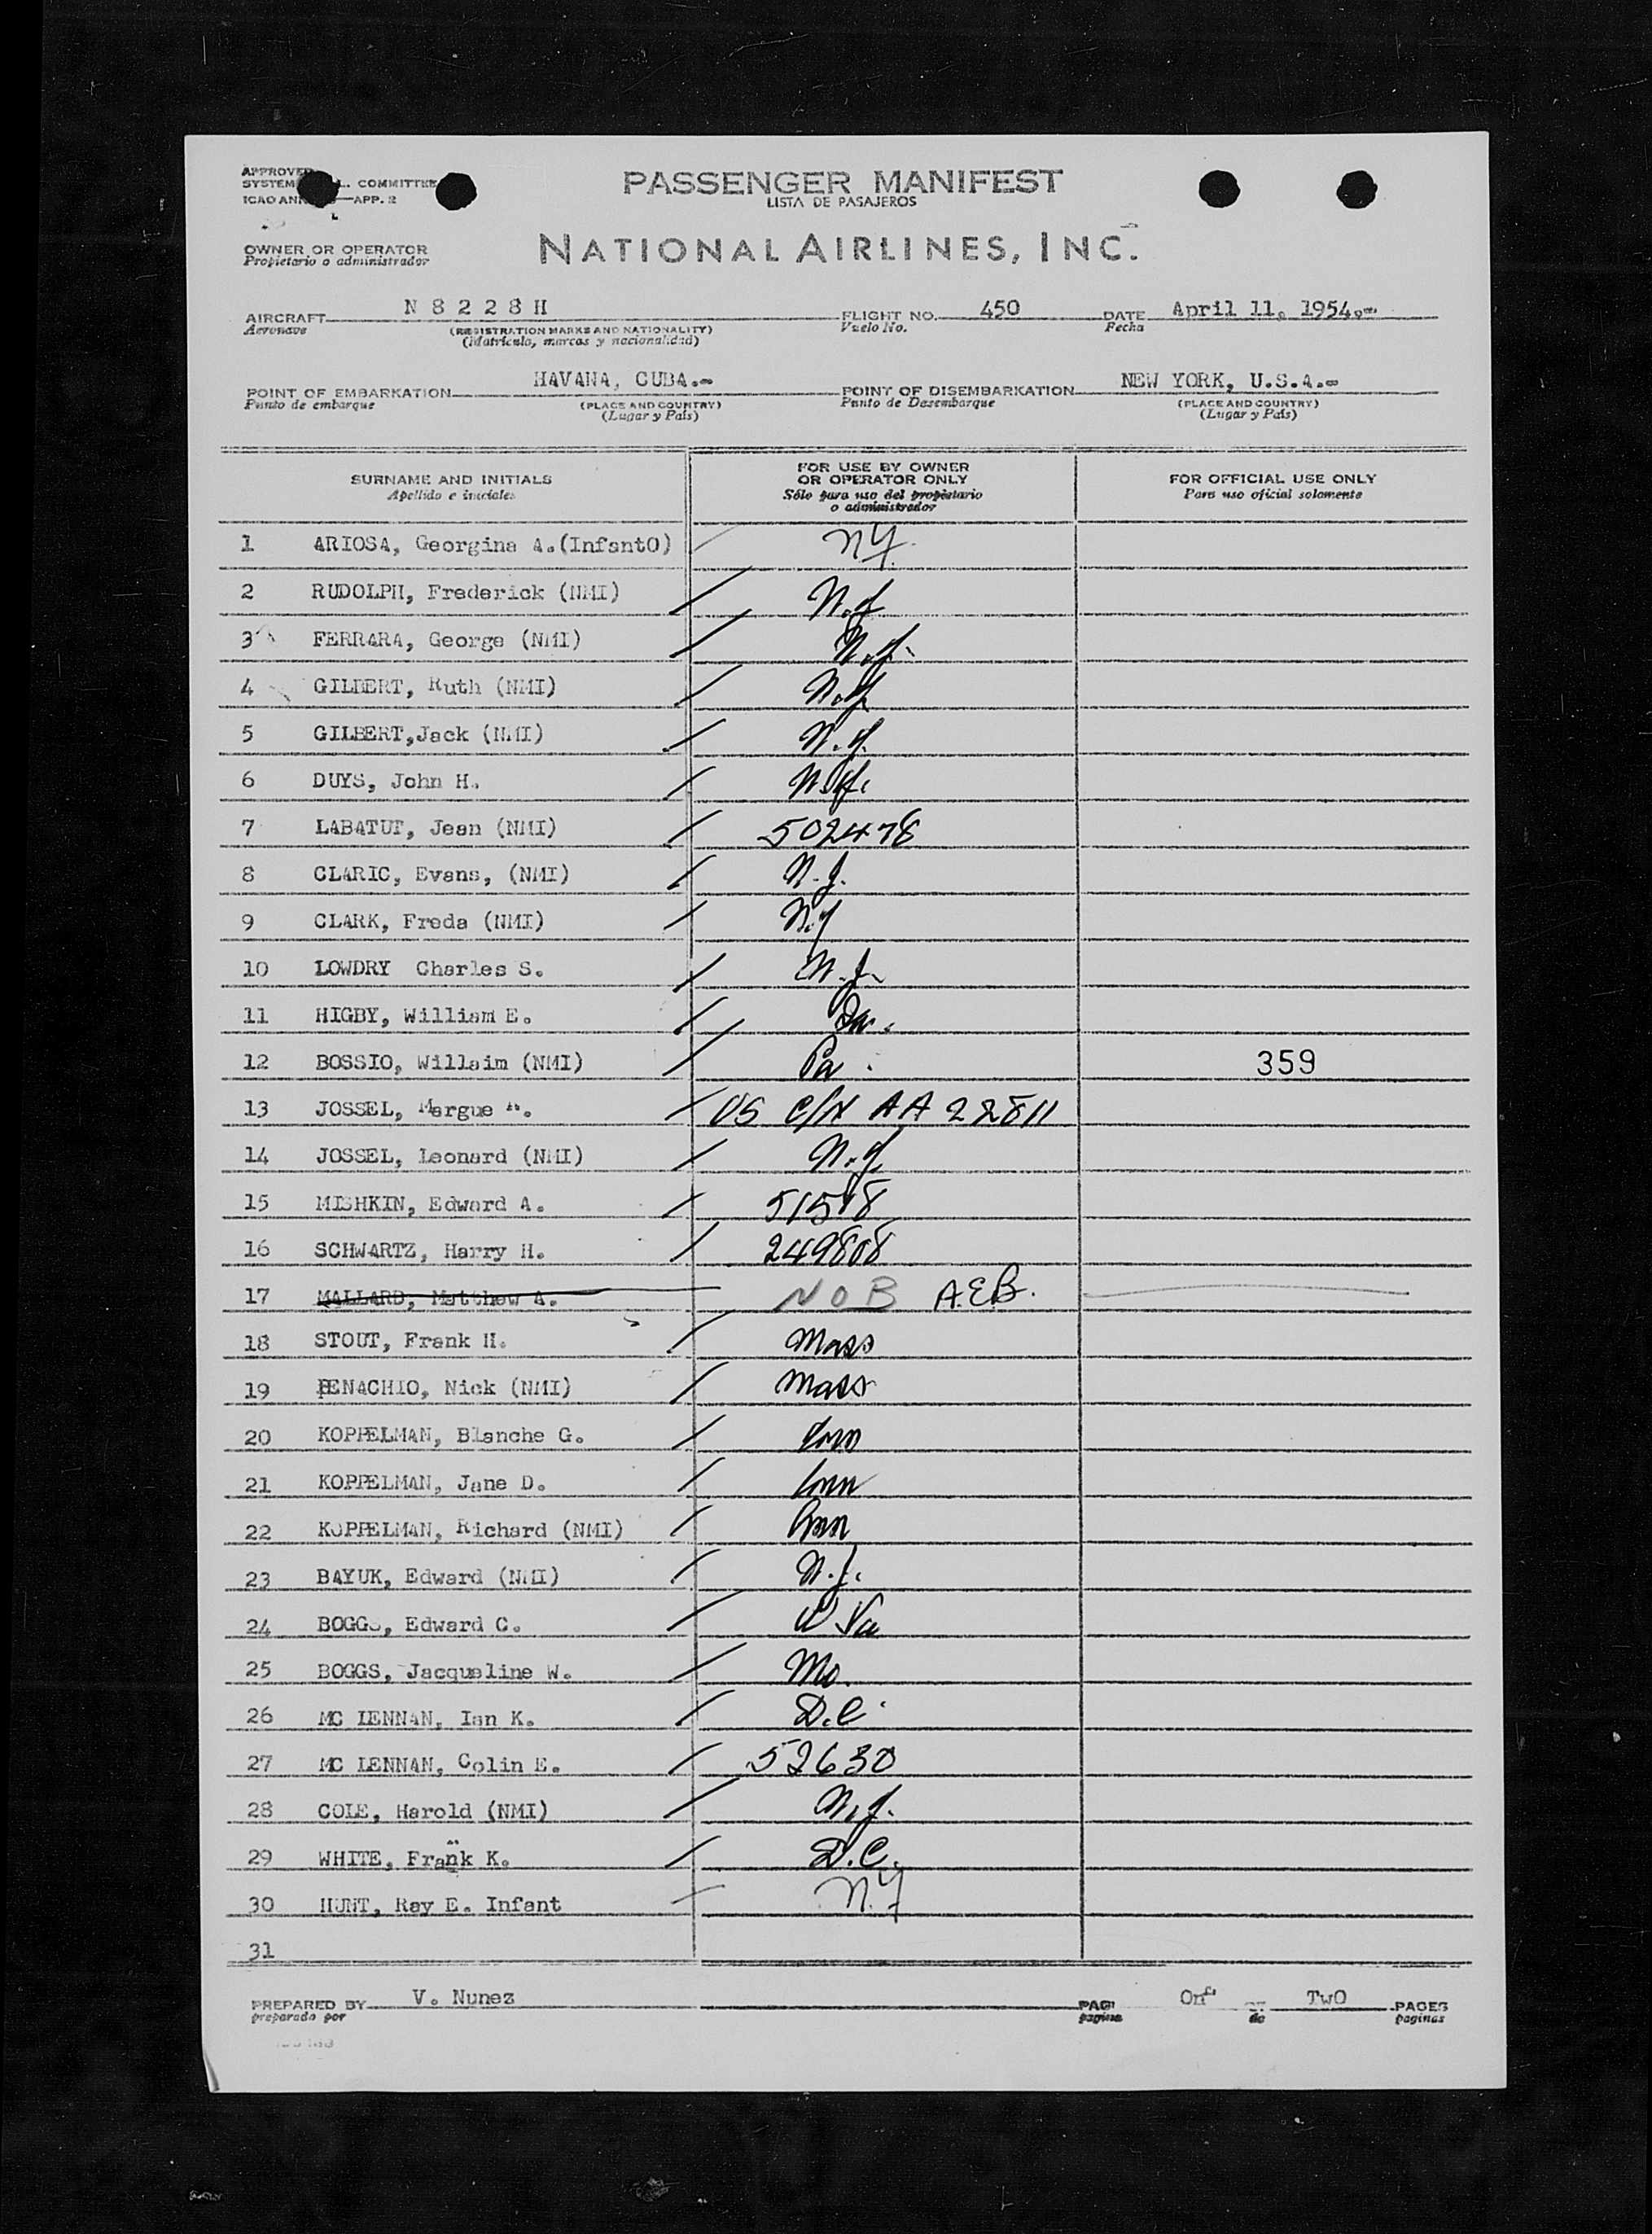 APPROVED
SYSTEM L. COMMITTEE
ICAO ANN —APP. 2
PASSENGER MANIFEST
LISTA DE PASAJEROS
OWNER OR OPERATOR
Propietario o administrador
NATIONAL AIRLINES, INC.
AIRCRAFT N 8 2 2 8 H FLIGHT NO. 450 DATE April 11, 1954.-
Aeronave (REGISTRATION MARKS AND NATIONALITY) Vuelo No. Fecha
(Matricula, marcas y nacionalidad)
POINT OF EMBARKATION HAVANA, CUBA.- POINT OF DISEMBARKATION NEW YORK, U.S.A.-
Punto de embarque (PLACE AND COUNTRY) Punto de Desembarque (PLACE AND COUNTRY)
(Lugar y País) (Lugar y País)
SURNAME AND INITIALS FOR USE BY OWNER OR OPERATOR ONLY FOR OFFICIAL USE ONLY
Apellido e iniciales Sólo para uso del propietario o administrador Para uso oficial solamente
1 ARIOSA, Georgina A.(InfsntO) N.Y.
2 RUDOLPH, Frederick (NMI)
3 FERRARA, George (NMI)
4 GILBERT, Ruth (NMI)
5 GILBERT,Jack (NMI)
6 DUYS, John H.
7 LABATUT, Jean (NMI) 502478
8 CLARIC, Evans, (NMI)
9 CLARK, Freda (NMI) N.Y
10 LOWDRY Charles S.
11 HIGBY, William E.
12 BOSSIO, Willaim (NMI) Pa. 359
13 JOSSEL, Margue US C/N AA 22811
14 JOSSEL, Leonard (NMI)
15 MISHKIN, Edward A.
16 SCHWARTZ, Harry H. 249808
17 MALLARD, Matthew A. NOB A.E.B.
18 STOUT, Frank H. Mass
19 PENACHIO, Nick (NMI) Mass
20 KOPPELMAN, Blanche G. Conn
21 KOPPELMAN, Jane D. Conn
22 KOPPELMAN, Richard (NMI) Conn
23 BAYUK, Edward (NMI)
24 BOGGS, Edward C. W Va
25 BOGGS, Jacqueline W. Mo.
26 MC LENNAN, Ian K. D.C.
27 MC LENNAN, Colin E. 52630
28 COLE, Harold (NMI)
29 WHITE, Frank K. D.C.
30 HUNT, Ray E. Infant N.Y
31
PREPARED BY V. Nunez PAGE One OF TwO PAGES
preparado por pagina de paginas